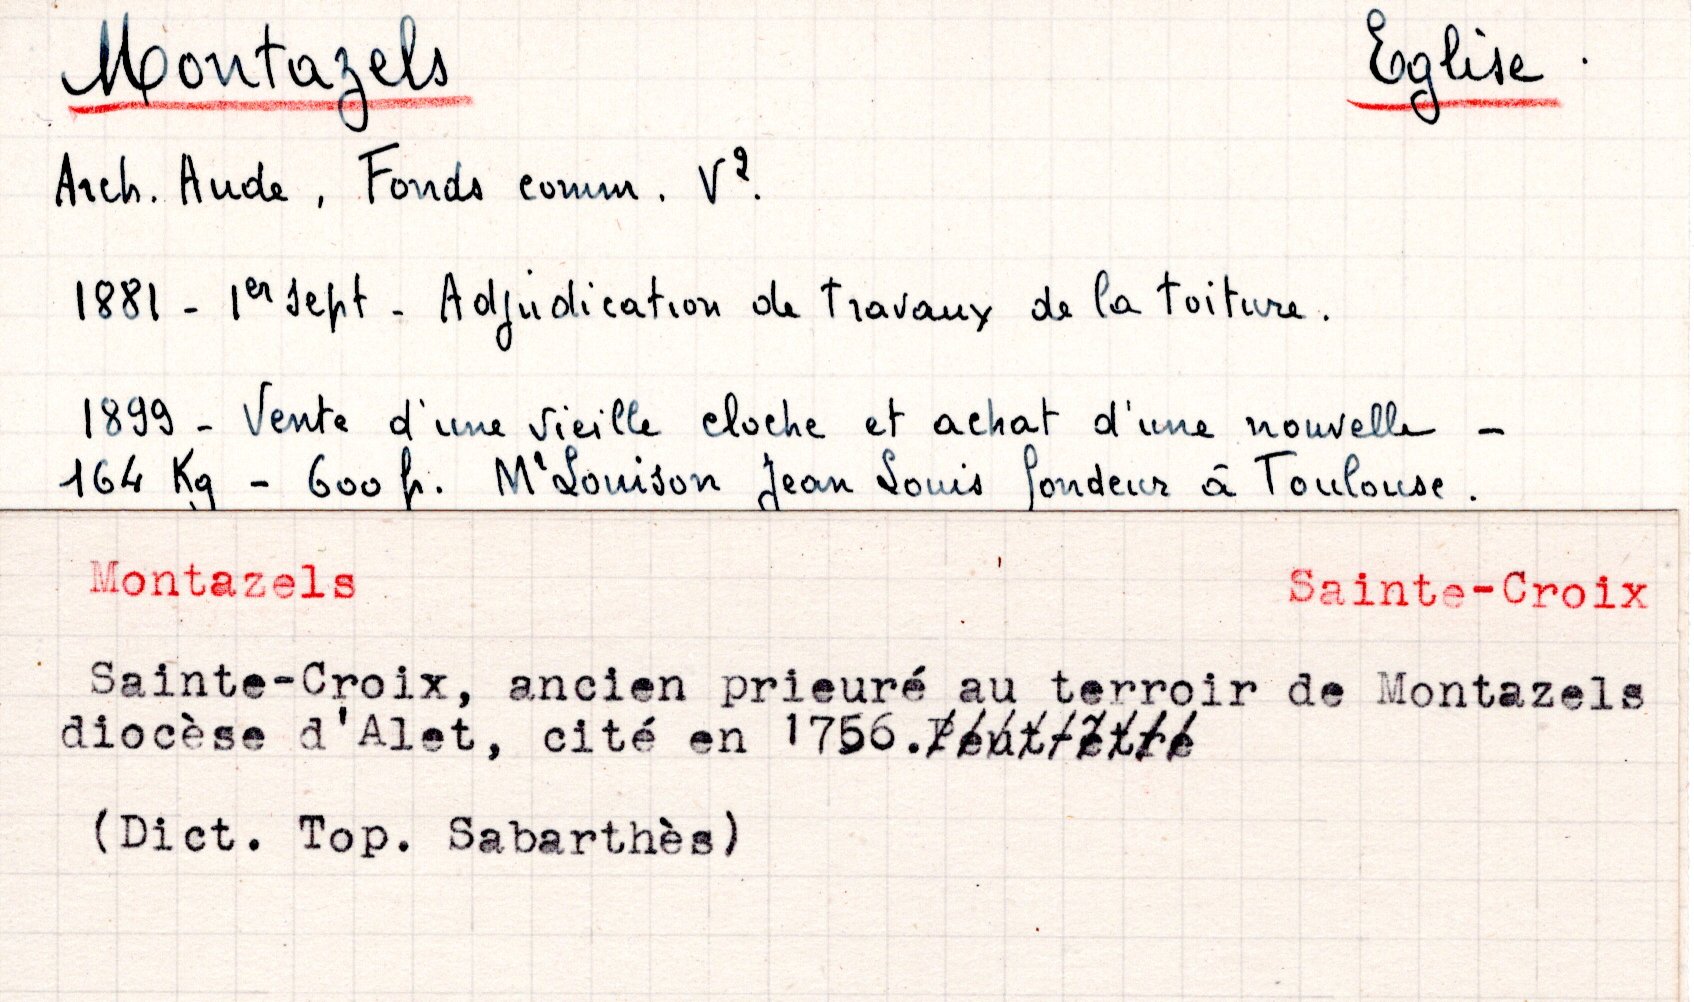 Montazels Eglise.
Arch. Aude, Fonds comm. V².
1881 - 1er sept - Adjudication de travaux de la toiture.
1899 - Vente d'une vieille cloche et achat d'une nouvelle -
164 Kg - 600 fr. Mr Louison Jean Louis fondeur à Toulouse.
Montazels Sainte-Croix
Sainte-Croix, ancien prieuré au terroir de Montazels
diocèse d'Alet, cité en 1756. Peut-être
(Dict. Top. Sabarthès)